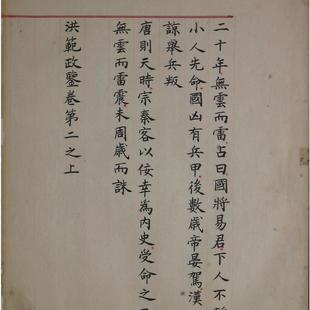 二十年無雲而雷占曰國將易君下人不靜
小人先命國凶有兵甲後數歲帝晏駕漢
諒舉兵叛
唐則天時宗秦客以佞幸為內史受命之
無雲而雷震未周歲而誅
洪範政鑒卷第二之上